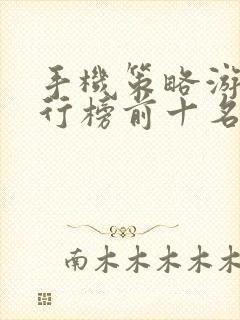 手機策略游
行榜前十名
南木木木木木